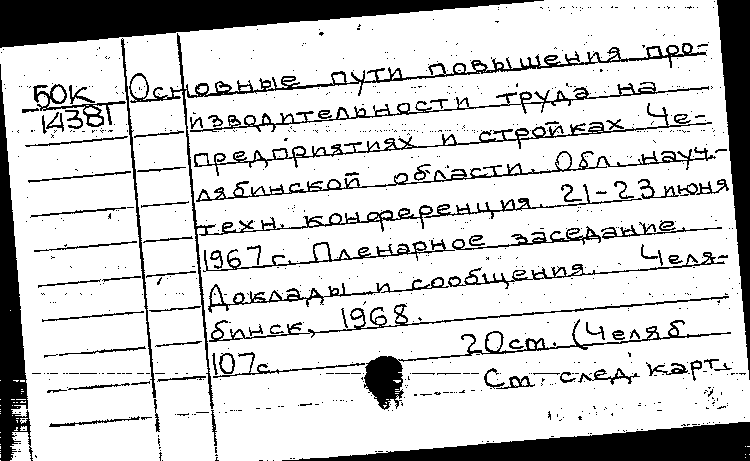 БОК Основные пути повышения про-
14381 изводительности труда на
предприятиях и стройках Че-
лябинской области. Обл. науч.-
техн. конференция. 21-23 июня
1967 г. Пленарное заседание.
Доклады и сообщения. Челя-
бинск, 1968.
107 с. 20 см. (Челяб.
См. след. карт.